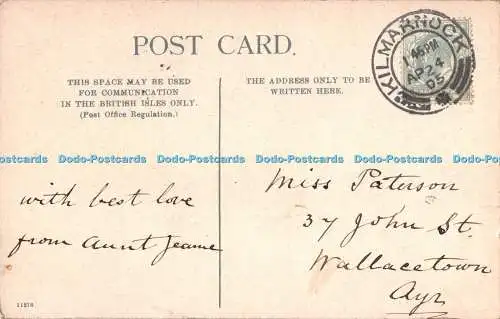 POST CARD.
THIS SPACE MAY BE USED
FOR COMMUNICATION
IN THE BRITISH ISLES ONLY.
(Post Office Regulation.)
THE ADDRESS ONLY TO BE
WRITTEN HERE.
KILMARNOCK
45 PM
AP 24
05
Dodo-Postcards Dodo-Postcards Dodo-Postcards Dodo-Postcards Dodo-Postcards Dodo-Postcards
with best love
from Aunt Jeanie
Miss Paterson
37 John St.
Wallacetown
Ayr
11276